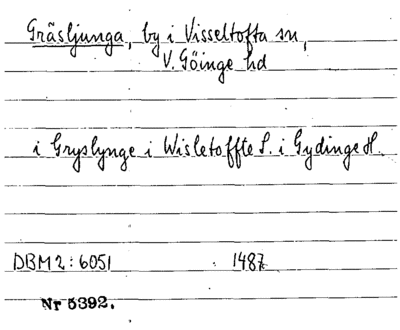 Gräsljunga, by i Visseltofta sn,
V. Göinge hd
i Gryslynge i Wisletoffte S. i Gydinge H.
DBM 2: 6051 1487
Nr 5392.